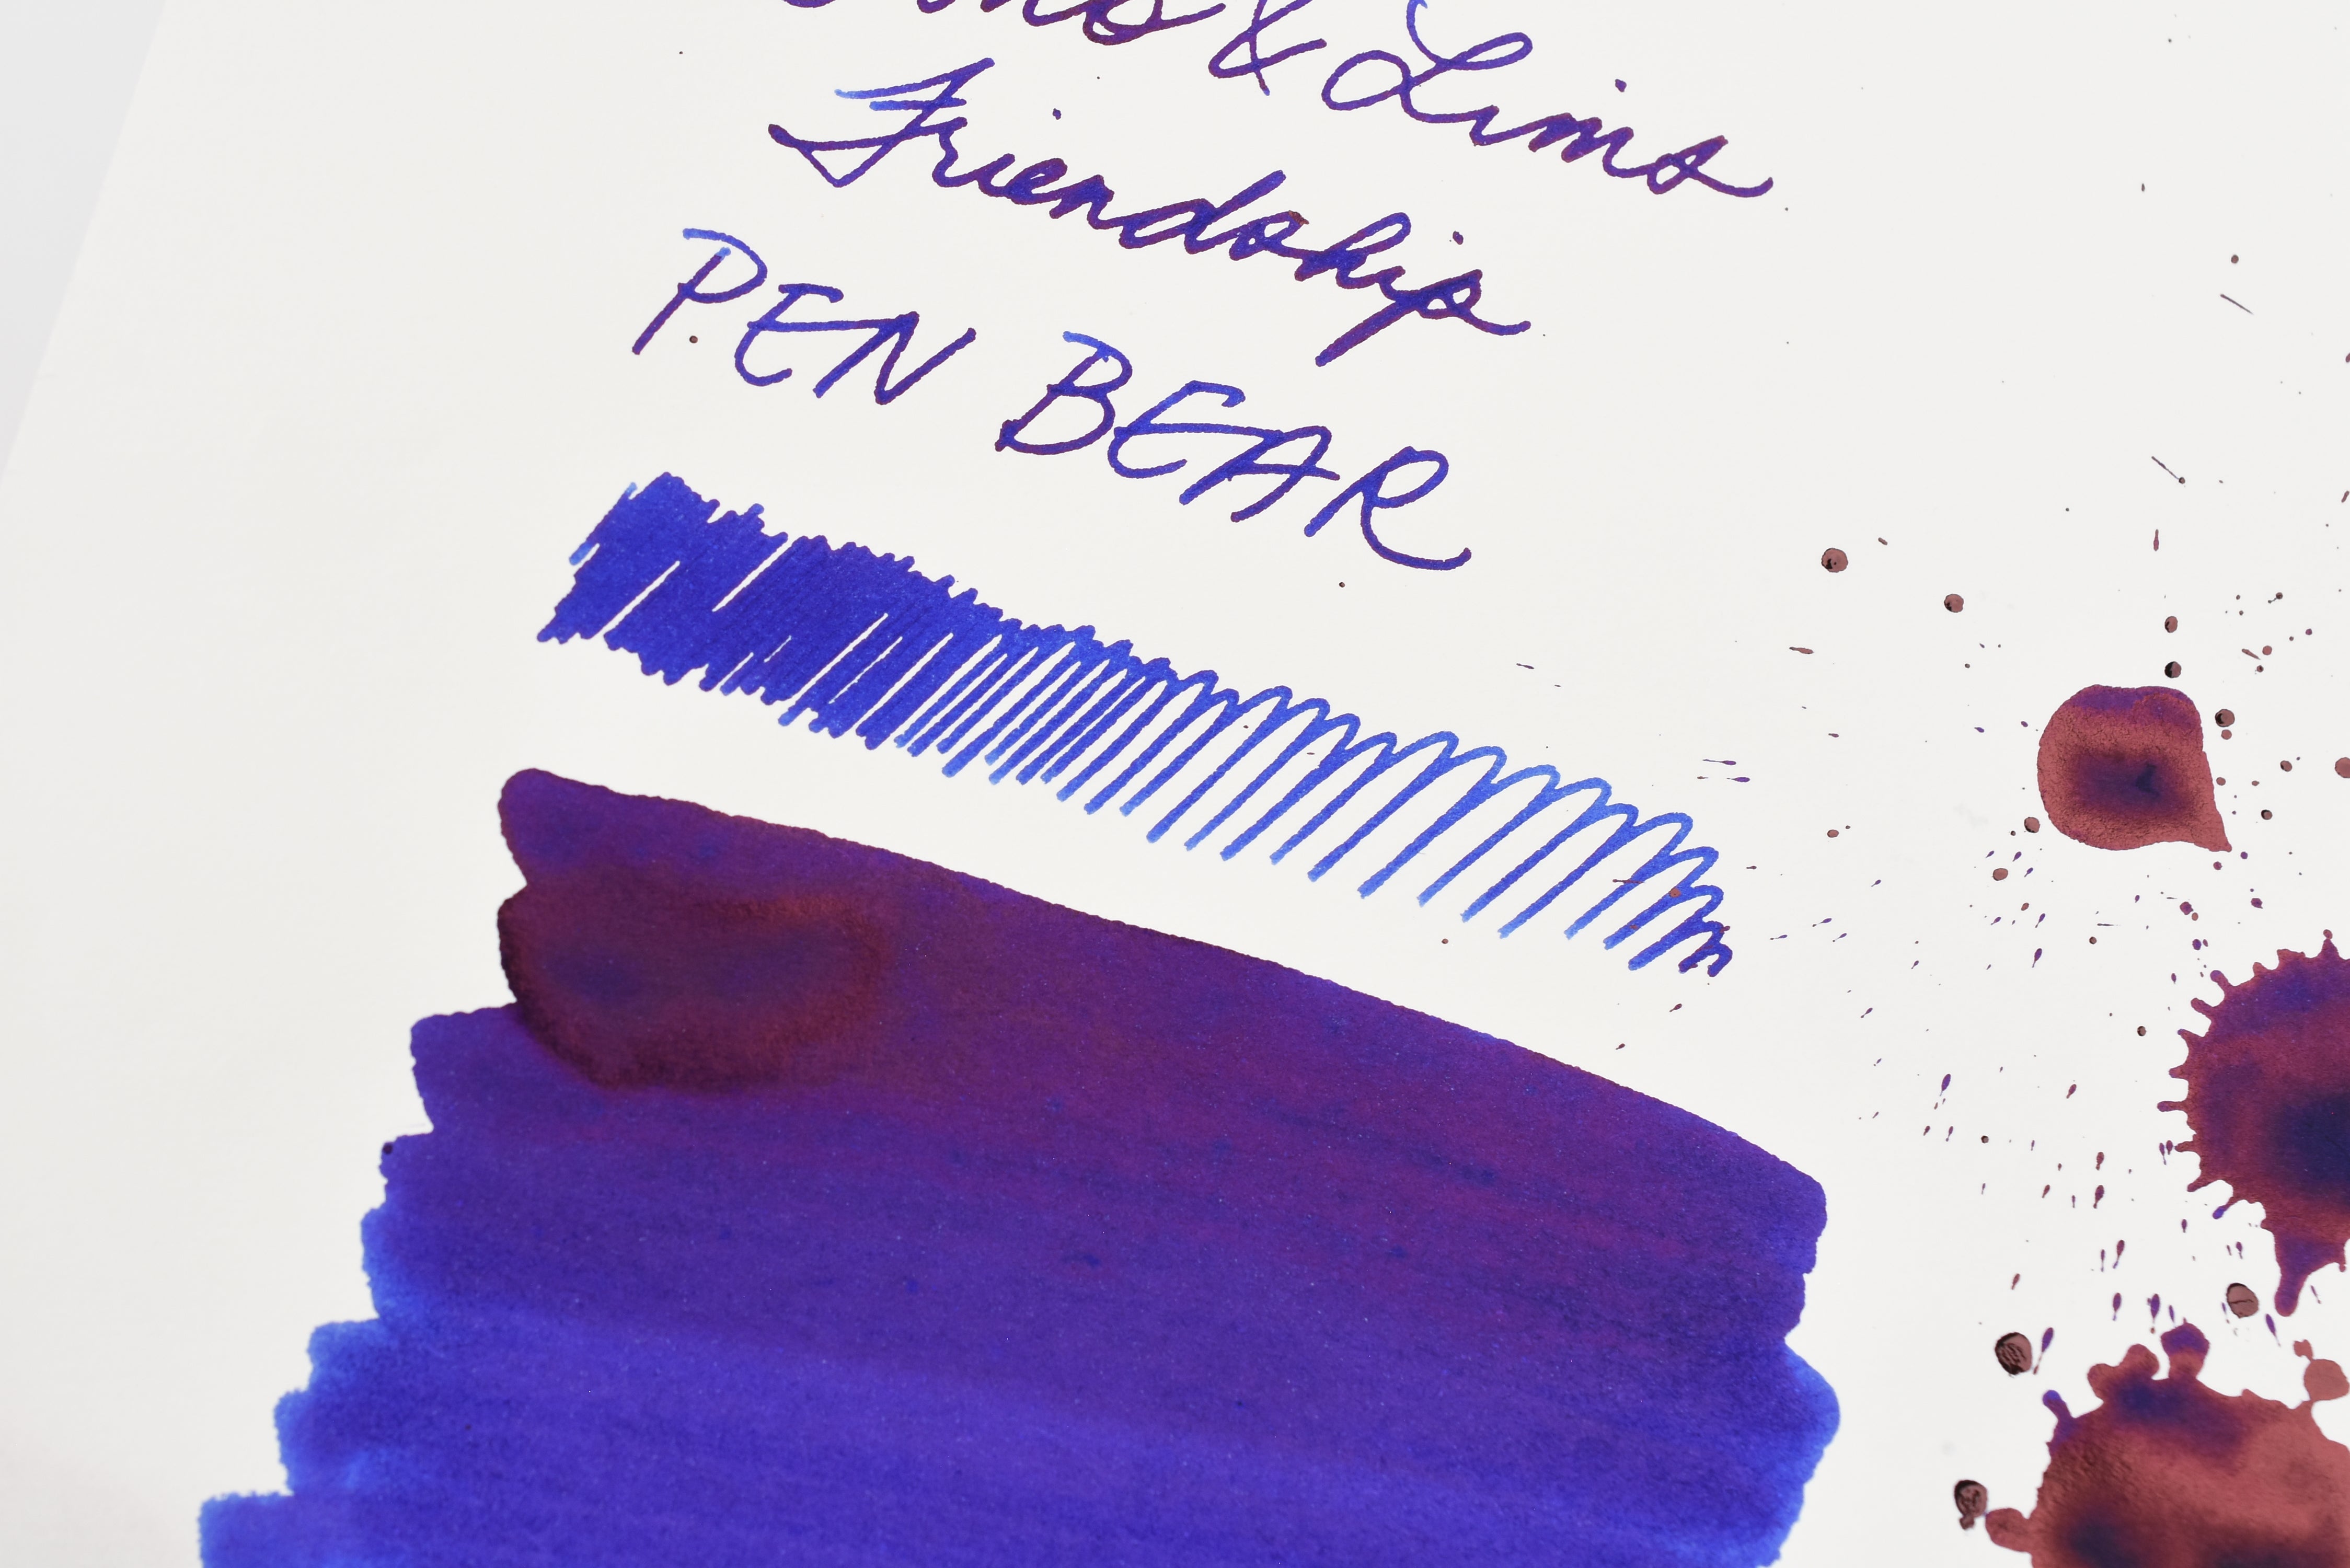 & Lims
Friendship
PEN BEAR